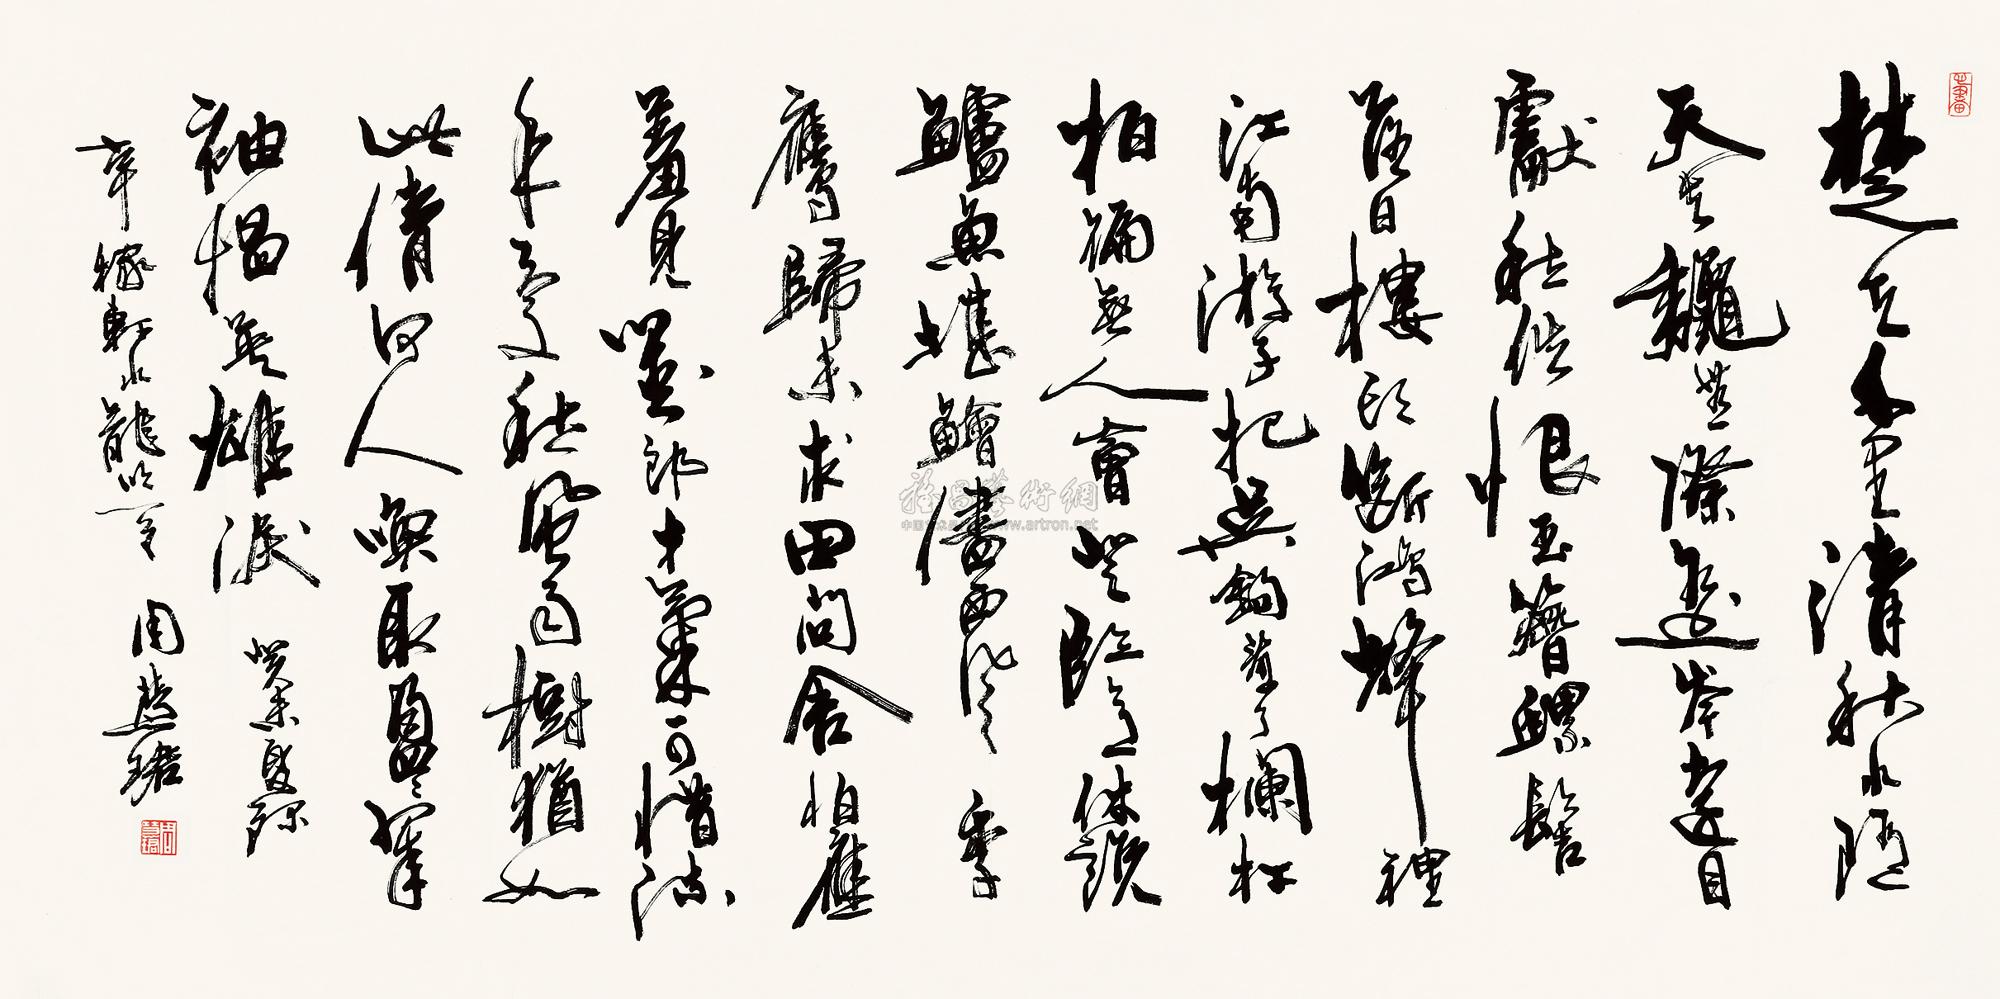 楚天千里清秋水隨
天去秋無際遙岑遠目
獻愁供恨玉簪螺髻
落日樓頭斷鴻聲裡
江南游子把吳鉤看了欄杆
拍遍無人會登臨意休說
鱸魚堪鱠儘西風季
鷹歸未求田問舍怕應
羞見劉郎才氣可惜流
年憂愁風雨樹猶如
此倩何人喚取盈盈翠
袖揾英雄淚 癸未夏錄
辛稼軒水龍吟一 周慧珺
雅昌藝術網
www.artron.net